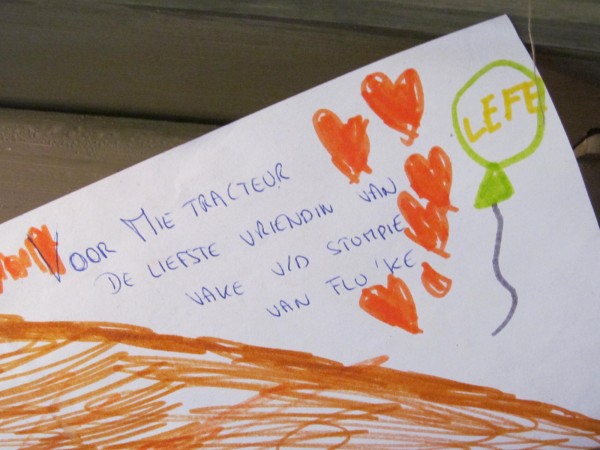 VOOR MIE TRACTEUR
DE LIEFSTE VRIENDIN VAN
VAKE V/D STOMPIE
VAN FLU'KE
LEFE